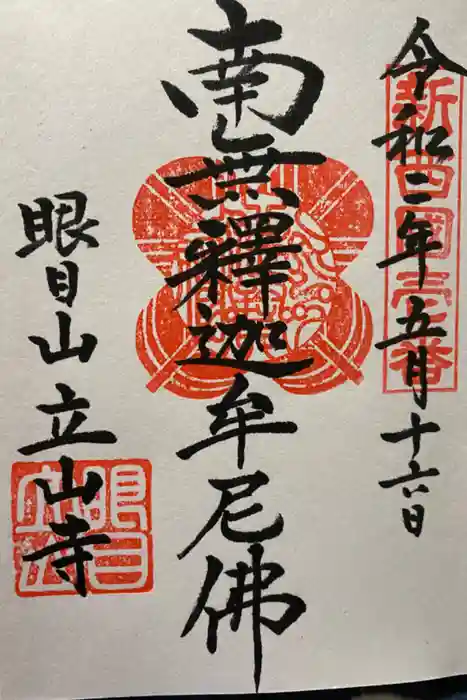 令和二年五月十六日
新四国壱番
南無釋迦牟尼佛
眼目山立山寺